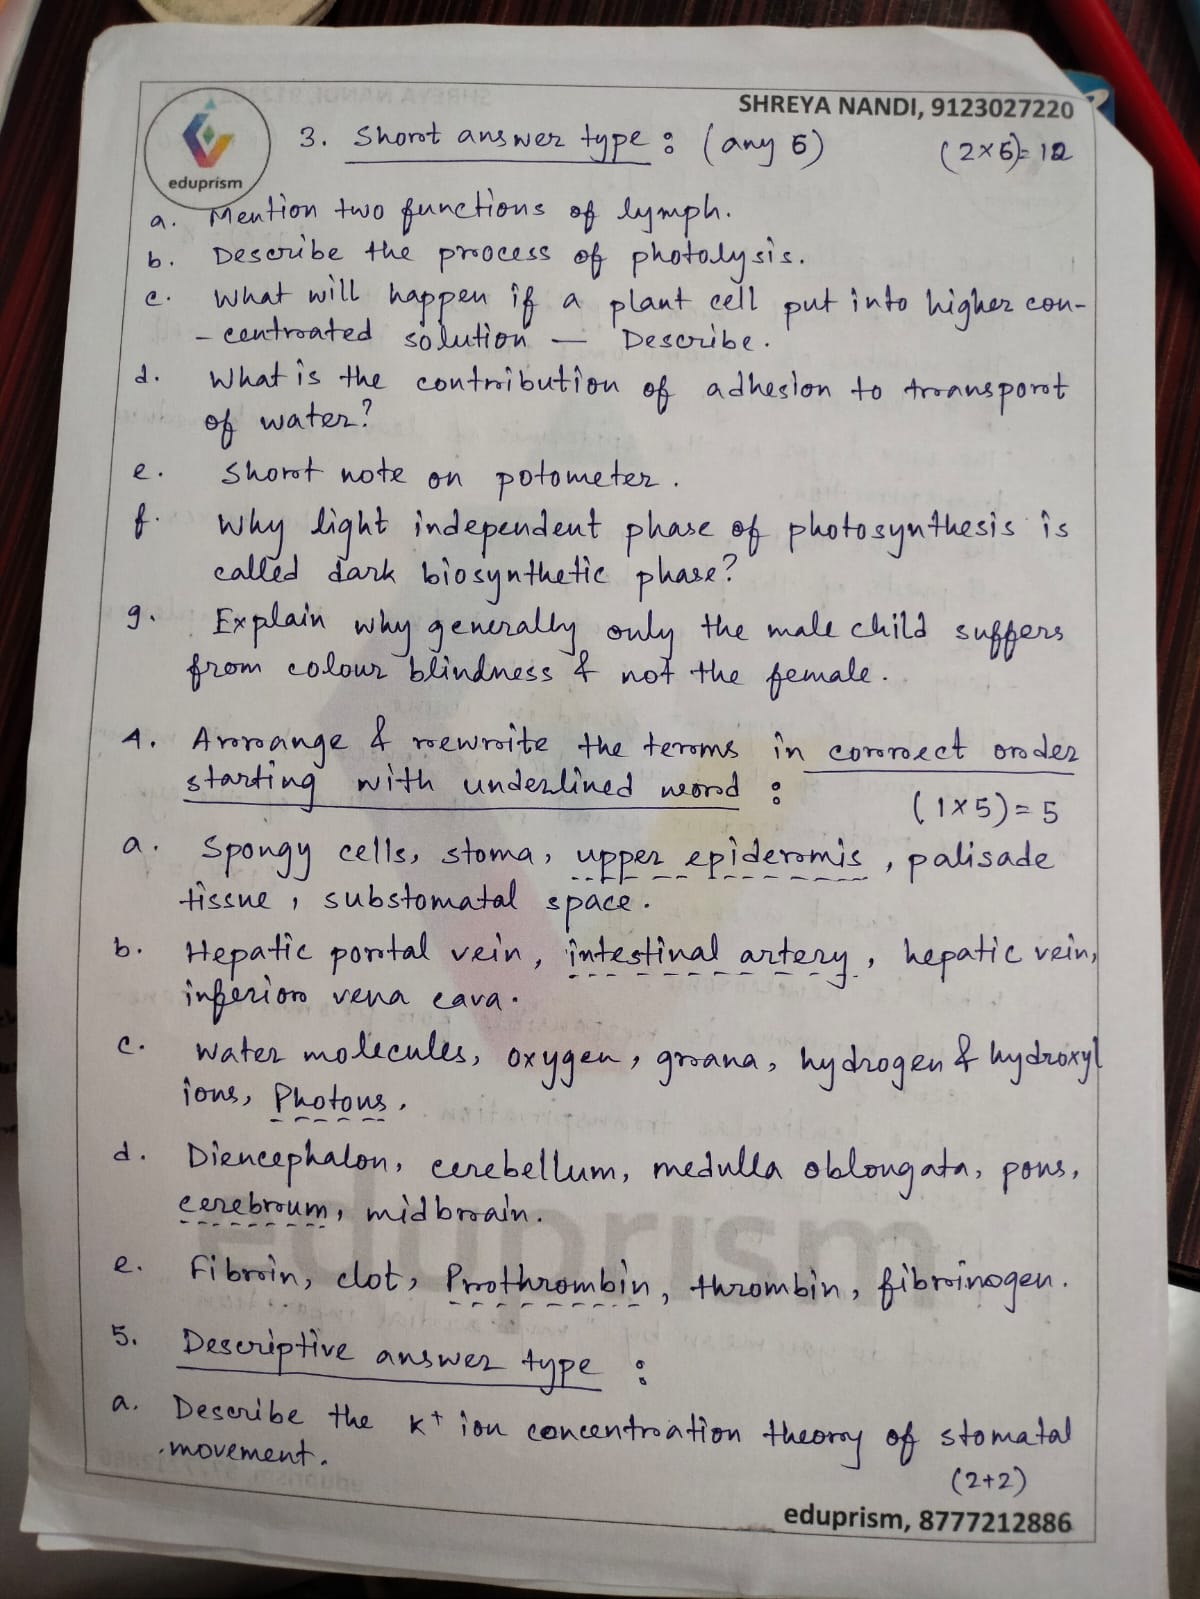 SHREYA NANDI, 9123027220
eduprism
3. Short answer type : (any 6) (2×6)= 12
a. Mention two functions of lymph.
b. Describe the process of photolysis.
c. What will happen if a plant cell put into higher con-
- centrated solution — Describe.
d. What is the contribution of adhesion to transport
of water?
e. Short note on potometer.
f. Why light independent phase of photosynthesis is
called dark biosynthetic phase?
g. Explain why generally only the male child suffers
from colour blindness & not the female.
4. Arrange & rewrite the terms in correct order
starting with underlined word : (1×5) = 5
a. Spongy cells, stoma, upper epidermis, palisade
tissue, substomatal space.
b. Hepatic portal vein, intestinal artery, hepatic vein,
inferior vena cava.
c. Water molecules, oxygen, grana, hydrogen & hydroxyl
ions, Photons.
d. Diencephalon, cerebellum, medulla oblongata, pons,
cerebrum, midbrain.
e. Fibrin, clot, Prothrombin, thrombin, fibrinogen.
5. Descriptive answer type :
a. Describe the K+ ion concentration theory of stomatal
movement.
(2+2)
eduprism, 8777212886